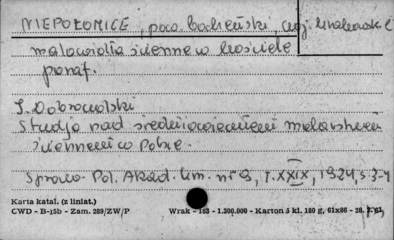 NIEPOŁOMICE, pow. Bocheński woj. krakowskie
malowidła ścienne w kościele
paraf.
T. Dobrowolski
Studja nad średniowiecznem malarstwem
ściennem w Polsce.
Sprawo. Pol. Akad. Um. nr 9, T. XXIX, 1924, s. 3-4
Karta katal. (z liniat.)
CWD - B-15b - Zam. 289/ZW/P Wrak - 163 - 1.200.000 - Karton 5 kl. 180 g, 61x86 - 28.